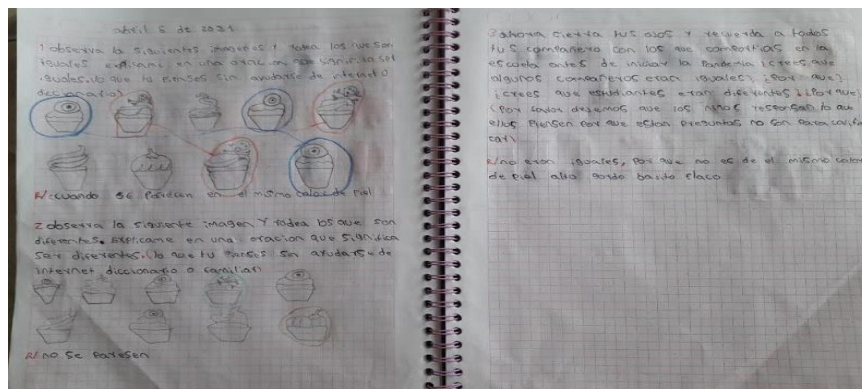 abril 5 de 2021
1 observa la siguientes imagenes y rodea los que son
iguales explicame en una oracion que significa ser
iguales. lo que tu pienses sin ayudarse de internet o
diccionario)
R/: cuando se parecen en el mismo calor de piel
2 observa la siguiente imagen y rodea los que son
diferentes. Explicame en una oracion que significa
ser diferentes. (lo que tu pienses sin ayudarse de
internet diccionario o familiar)
R/ no se paresen
3 ahora cierra tus ojos y recuerda a todos
tus compañero con los que compartias en la
escuela antes de iniciar la Pandemia ¿crees que
algunos compañeros eran iguales? ¿Por que?
¿crees que estudiantes eran diferentes? ¿Por que?
(Por favor dejemos que los niños respondan lo que
ellos Piensen Por que estan preguntas no son para califi
car)
R/ no eran iguales, Por que no es de el mismo color
de piel alto gordo bajito flaco